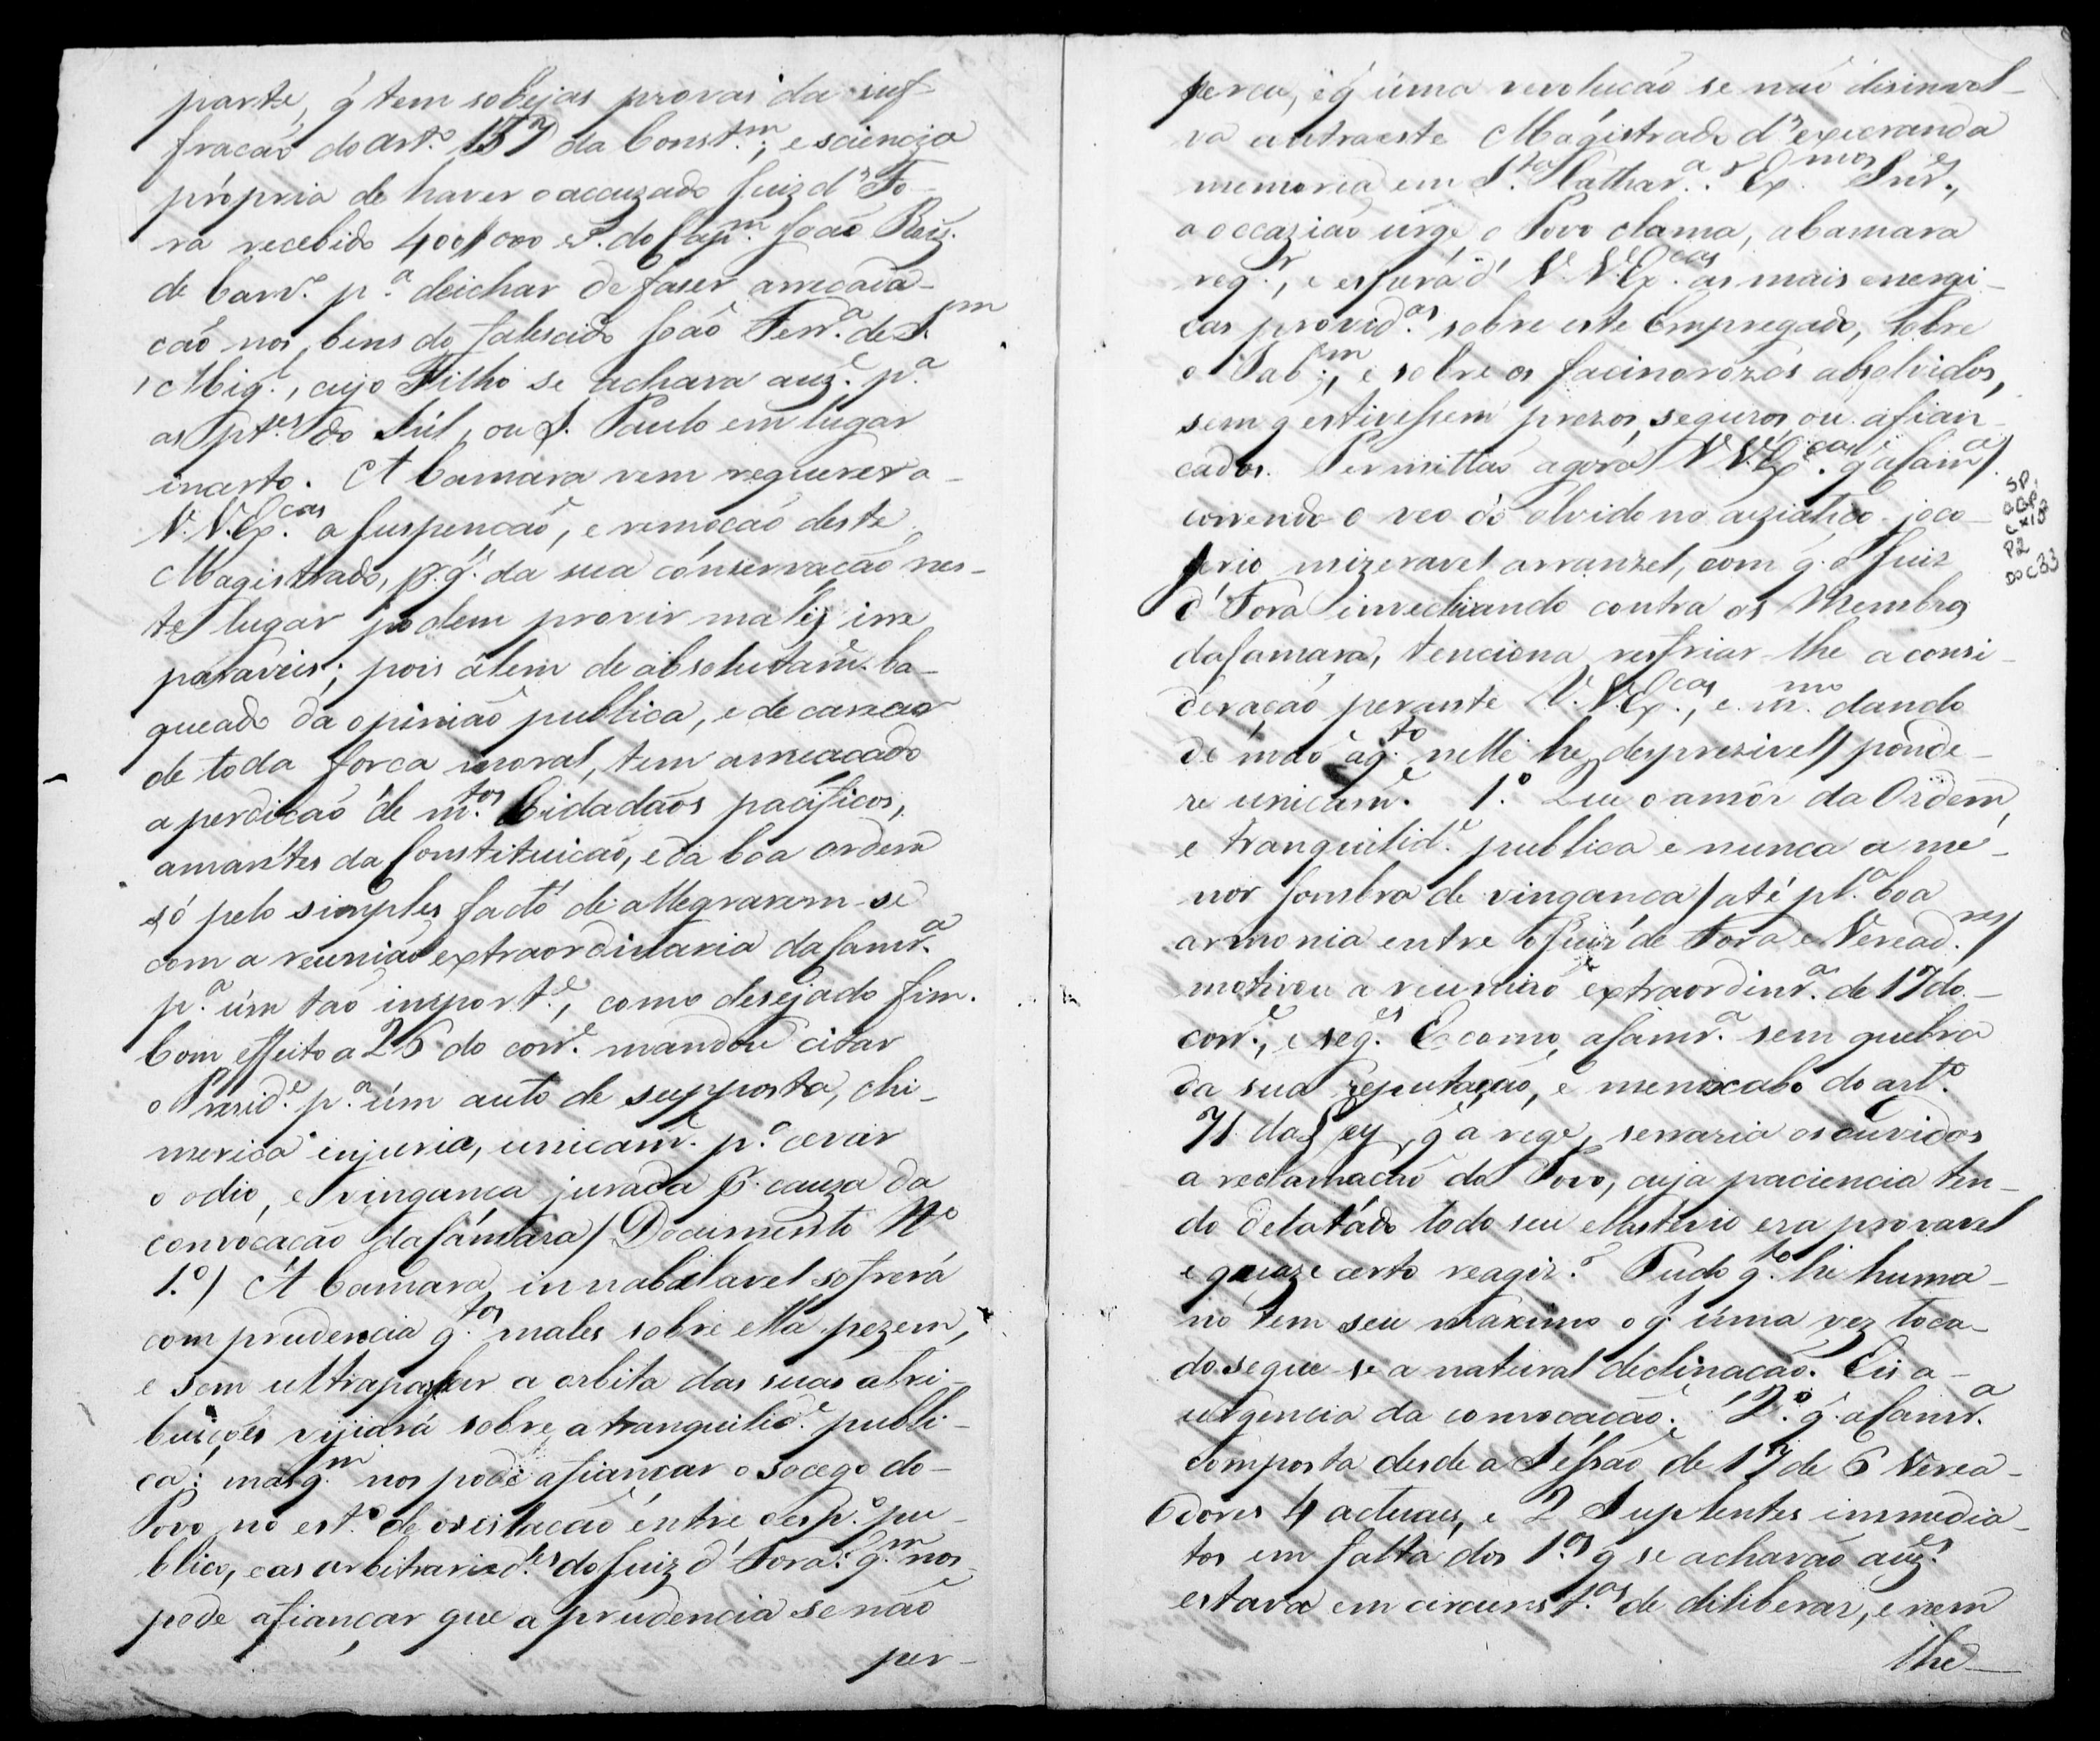 parte, q̃ tem sobejas provas da inf-
fracaõ do Art.º 157 da Const.m; e sciencia
própria de haver o accuzado Juiz d'Fo-
ra recebido 400$000 rs. do Cap.m João Roiz.
de Carv.º p.ª deichar de faser arrecada-
caõ nos bens do falescido João Ferr.ª de S.
Mig.l, cujo Filho se achava auz.e p.ª
as pt.es do Súl, ou S. Paulo em lugar
incerto. A Camara vem requerer a
V.V.Ex.cas a suspencaõ, e remocaõ deste
Magistrado, p.q̃ da sua cónservacaõ nes-
te lugar podem provir males irre
paraveis; pois álem de absolutam.e ba-
queado da opiniaõ publica, e de carecer
de toda forca moral, tem ameacado
a perdicaõ de m.tos Cidadaõs pacificos,
amantes da Constituicaõ, e da boa ordem
só pelo simples facto de allegrarem-se
com a reuniaõ extraordinaria da Camr.ª
p.ª úm taõ import.e, como desejado fim.
Com effeito a 26 do corr.e mandou citar
o Presid.e p.ª úm auto de supposta, chi-
merica injuria, unicam.e p.ª cevar
o odio, e vinganca jurada p. cauza da
convocacaõ da Cámara / Documento Nº
1.º) A Camara innabalavel sofrerá
com prudencia q.tos males sobre ella pezem,
e sem ultrapassar a orbita das suas atri-
buicoẽs vijiará sobre a tranquilid.e publi-
ca: mas q.m nos póde afiancar o socego do
Povo no est.º de oscilacaõ éntre o esp.º pu-
blico, e as arbitraried.es do Juiz d' Fora: q.m nos
pode afiançar que a prudencia se naõ
per-
perca, e q̃ úma revolucaõ se naõ disinvol-
va contra este Magistrado d'execranda
memoria em S.ta Cathar.ª. Ex.mos Snr.es,
a occaziaõ úrge, o Povo clama, a Camara
req.r, e espera d' V.V.Ex.cas as mais energi-
cas provid.as sobre este Empregado, sobre
o Tab.m, e sobre os facinorózos absolvidos,
sem q̃ estivessem prezos, seguros, ou afian-
cados. Permittaõ agora V.V.Ex.cas q̃ a Cam.ª /
correndo o veo dó olvido no aziatico joco-
serio mizeravel arranzel, com q̃ o Juiz
d' Fora invectivando contra os Membros
da Camara, tenciona resfriar-lhe a consi-
deraçaõ perante V.V.Ex.cas, e m.mo dando
de maõ áq.to nelle he desprezivel / ponde-
re unicam.e 1.º Que o amór da Ordem,
e tranquilid.e publica e nunca a me-
nor sombra de vinganca / até pl.ª boa
armonia entre o Juiz de Fora e Veread.res /
motivou a reuniaõ extraordinr.ª de 17 do
corr.e, e seg.es E como a Camr.ª sem quebra
da sua reputaçaõ, e menoscabo do art.º
71 da Ley, q̃ a rege, serraria os ouvidos
a reclamacaõ do Povo, cuja paciencia ten-
do delatádo todo seu elasterio era provavel
e quaze certo reagir? Tudo q.to he huma-
no tem seu maximo o q̃ úma vez toca-
do segue-se a natural diclinacaõ. Eis a
urgencia da convocacaõ. 2.º q̃ a Camr.ª
composta desde a Séssaõ de 17 de 6 Verea-
dores 4 actuaes, e 2 Suplentes immedia-
tos em falta dos 1.os q̃ se achavaõ auz.es
estava em circunst.as de diliberar, e nem
lhe
SP.
C X18
P2
DOC 33